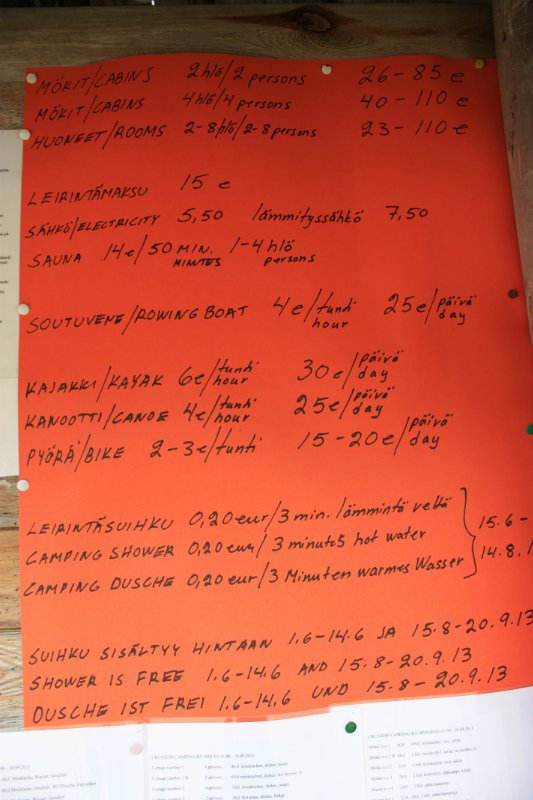 MÖKIT/CABINS 2 hlö/2 persons 26-85 e
MÖKIT/CABINS 4 hlö/4 persons 40-110 e
HUONEET/ROOMS 2-8 hlö/2-8 persons 23-110 e
LEIRINTÄMAKSU 15 e
SÄHKÖ/ELECTRICITY 5,50 lämmityssähkö 7,50
SAUNA 14 e/50 MIN. 1-4 hlö
MINUTES persons
SOUTUVENE/ROWING BOAT 4 e/tunti 25 e/päivä
hour day
KAJAKKI/KAYAK 6 e/tunti 30 e/päivä
hour day
KANOOTTI/CANOE 4 e/tunti 25 e/päivä
hour day
PYÖRÄ/BIKE 2-3 e/tunti 15-20 e/päivä
day
LEIRINTÄSUIHKU 0,20 eur/3 min. lämmintä vettä
CAMPING SHOWER 0,20 eur/3 minutes hot water
CAMPING DUSCHE 0,20 eur/3 Minuten warmes Wasser
15.6-
14.8.
SUIHKU SISÄLTYY HINTAAN 1.6-14.6 JA 15.8-20.9.13
SHOWER IS FREE 1.6-14.6 AND 15.8-20.9.13
DUSCHE IST FREI 1.6-14.6 UND 15.8-20.9.13